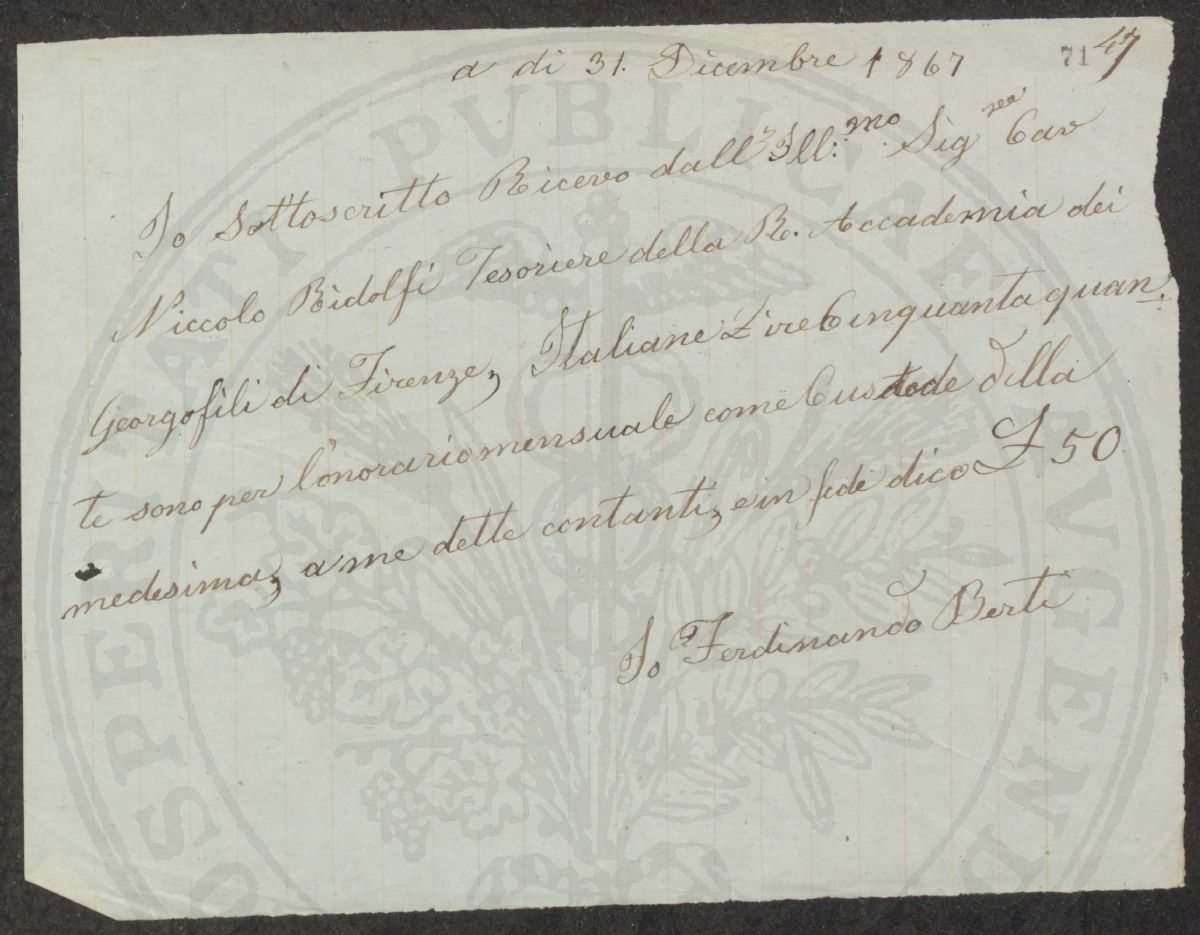 a di 31. Dicembre 1867
71 47
Io Sottoscritto Ricevo dall' Ill:mo Sig.re Cav
Niccolo Ridolfi Tesoriere della R. Accademia dei
Georgofili di Firenze, Italiane Lire Cinquanta quan-
te sono per l'onorario mensuale come Custode della
medesima, a me dette contanti, e in fede dico £ 50
Io Ferdinando Berti
PROSPERITATI PVBLICAE AVGEND